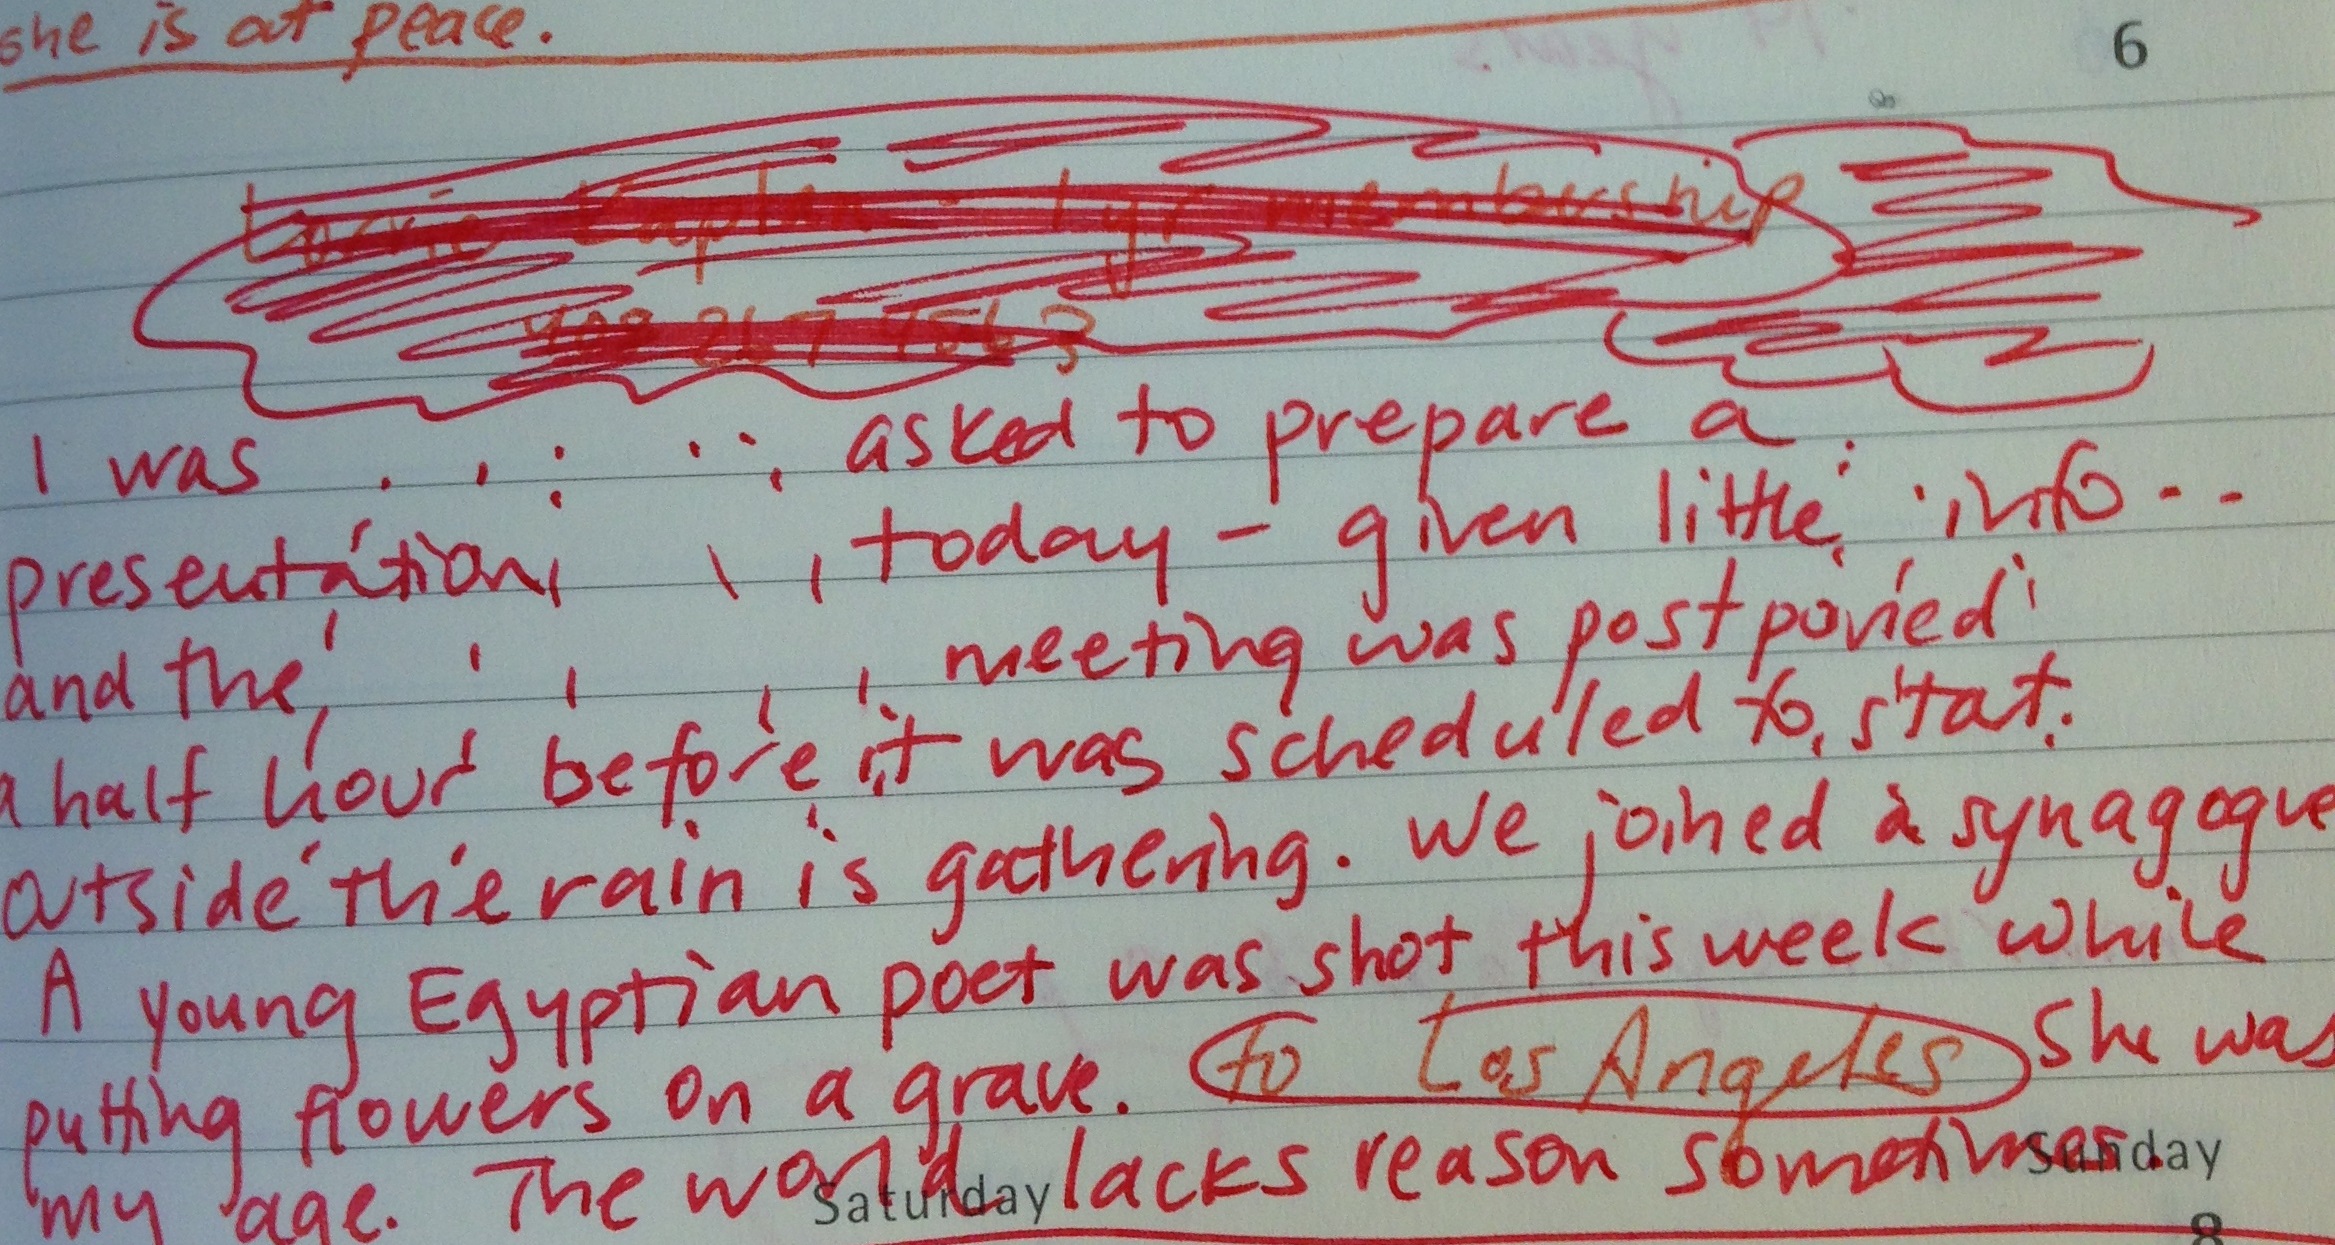 she is at peace.
6
1 yr membership
I was asked to prepare a
presentation today - given little info --
and the meeting was postponed
a half hour before it was scheduled to stat.
outside the rain is gathering. We joined a synagogue
A young Egyptian poet was shot this week while
putting flowers on a grave. to Los Angeles She was
my age. The world lacks reason sometimes.
Saturday
Sunday
8